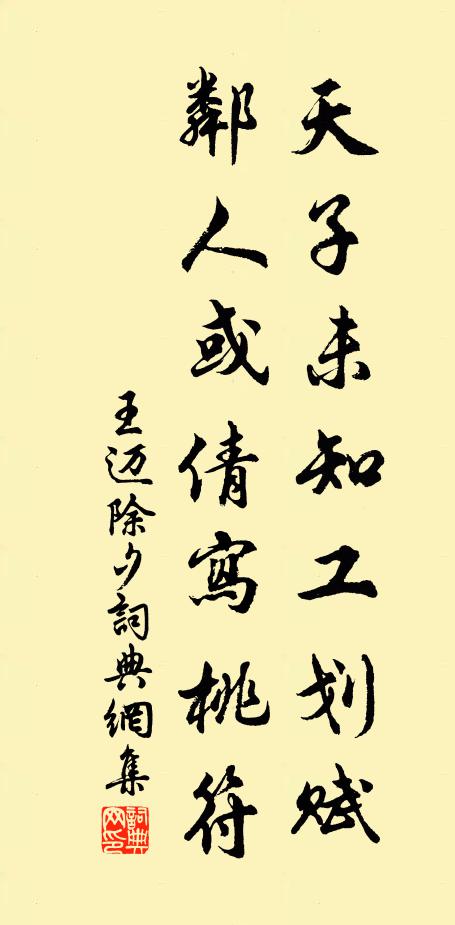 天子未知工划赋
鄰人或倩寫桃符
王迈除夕詞典網集
詞典網印